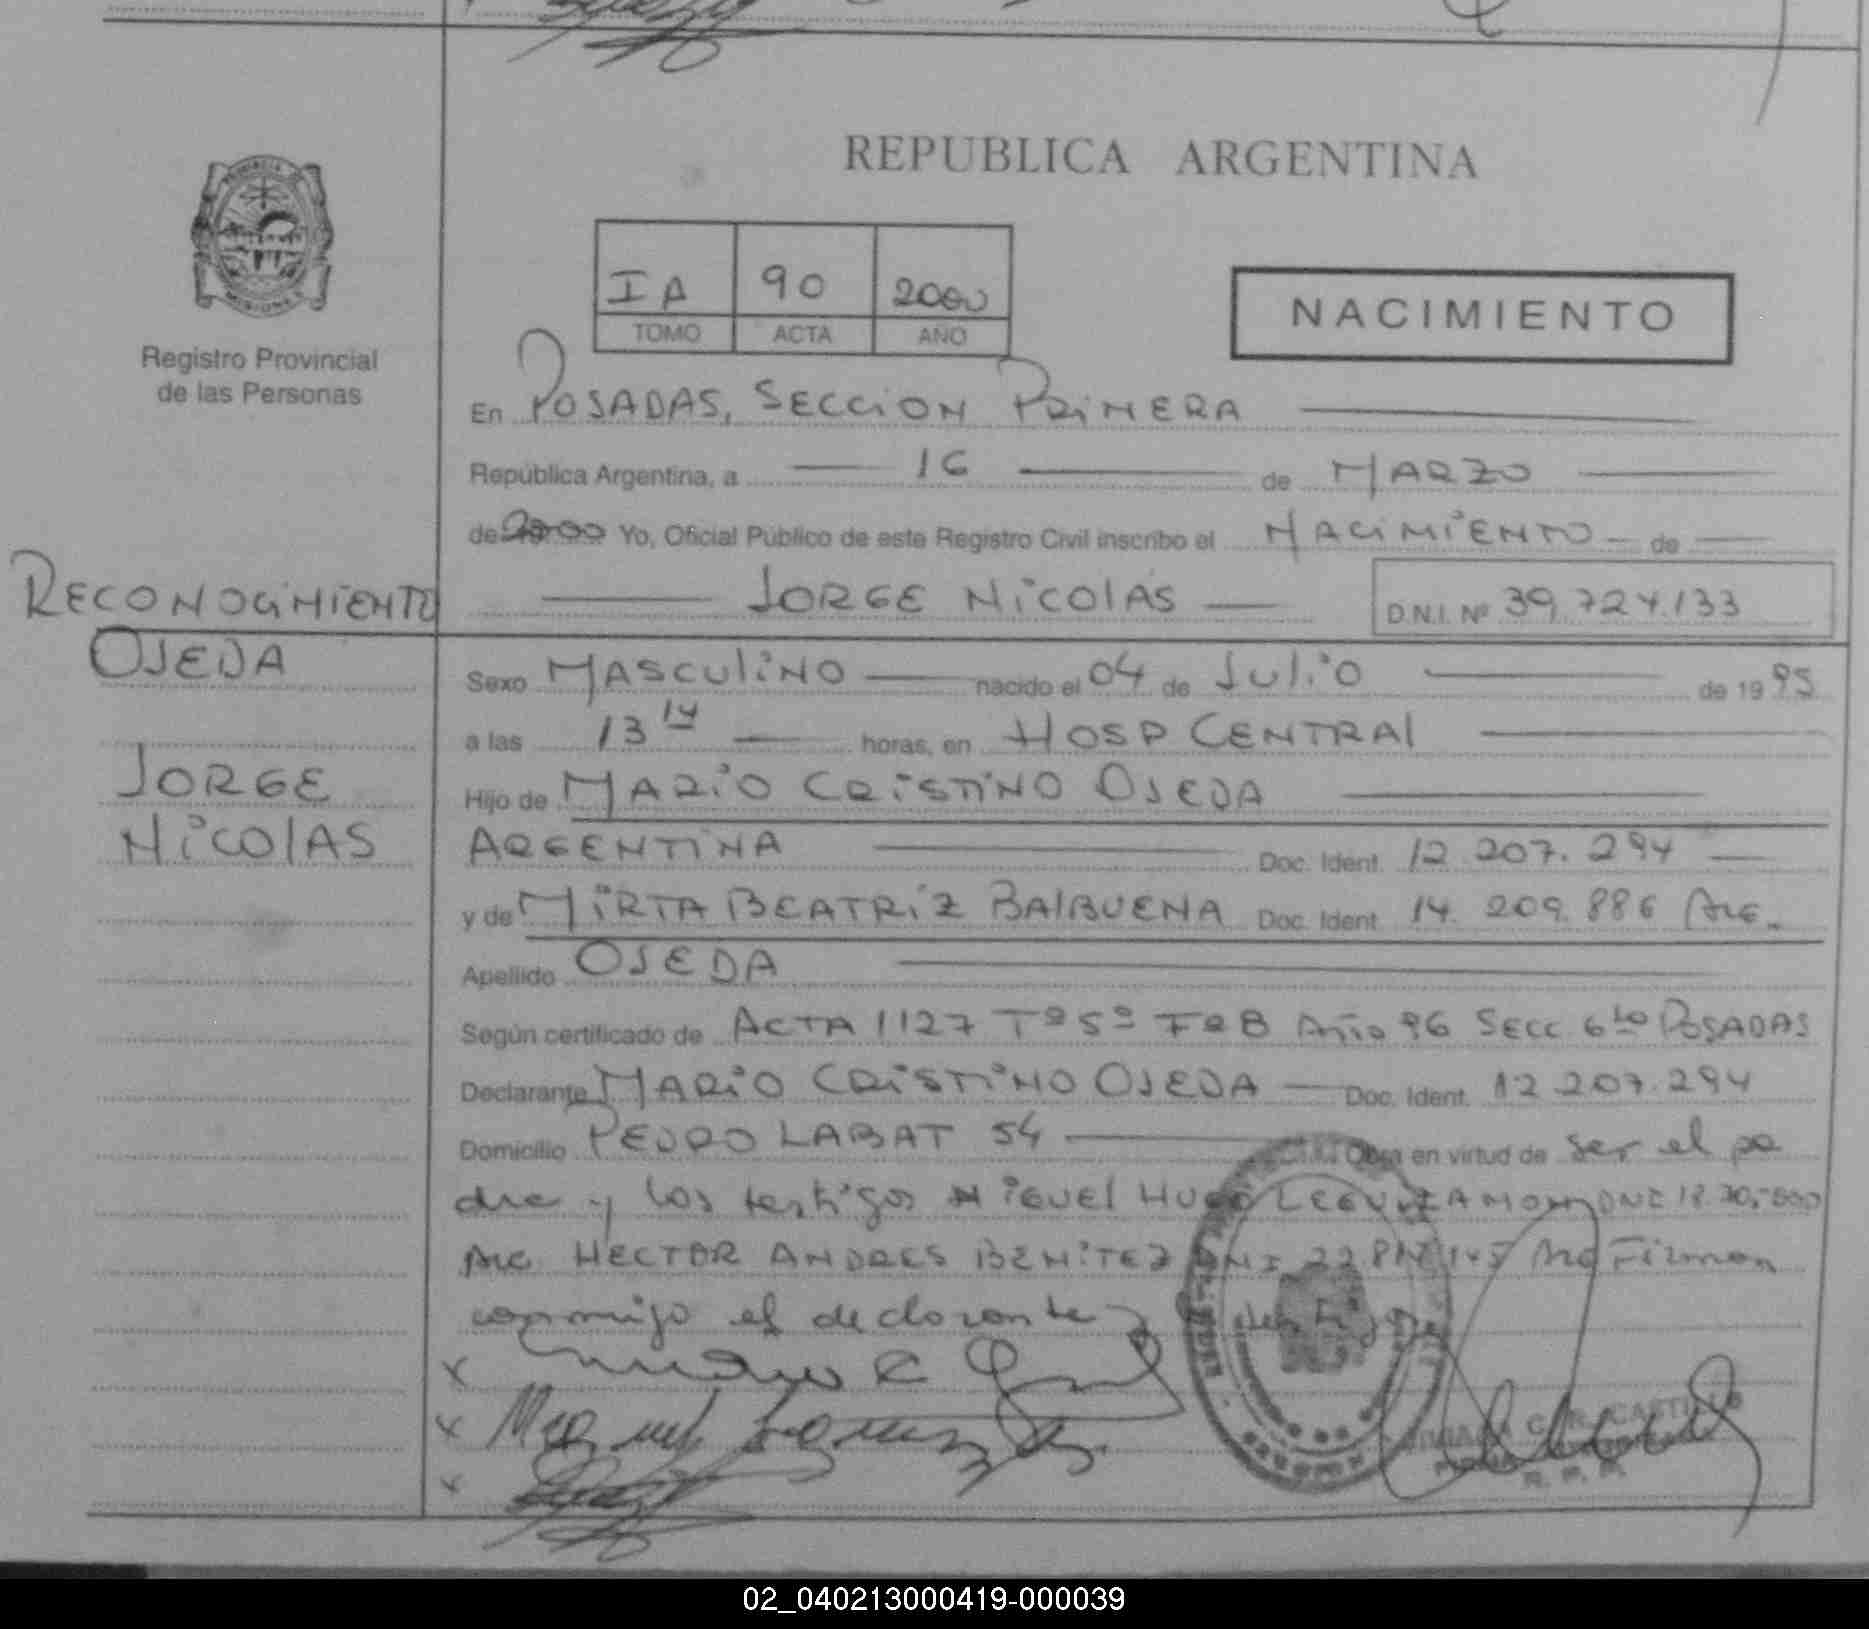 REPUBLICA ARGENTINA
IA 90 2000
TOMO ACTA AÑO
NACIMIENTO
Registro Provincial
de las Personas
En POSADAS, SECCION PRIMERA
República Argentina, a 16 de MARZO
de 2000 Yo, Oficial Público de este Registro Civil inscribo el NACIMIENTO de
JORGE NICOLAS D.N.I. Nº 39.724.133
RECONOCIMIENTO
OJEDA
JORGE
NICOLAS
Sexo MASCULINO nacido el 04 de JULIO de 1995
a las 13 14 horas, en HOSP CENTRAL
Hijo de MARIO CRISTINO OJEDA
ARGENTINA Doc. Ident. 12 207.294
y de MIRTA BEATRIZ BALBUENA Doc. Ident. 14. 209.886 ARG.
Apellido OJEDA
Según certificado de ACTA 1127 Tº 5º Fº 8 Año 96 SECC 6ta POSADAS
Declarante MARIO CRISTINO OJEDA Doc. Ident. 12 207.294
Domicilio PEDRO LABAT 54 Obra en virtud de ser el pa
dre y los testigos MIGUEL HUGO LEGUIZAMON DNI
ARG HECTOR ANDRES BENITEZ DNI Arg Firman
conmigo el declarante y
MISIONES
CASTILLO
02_040213000419-000039